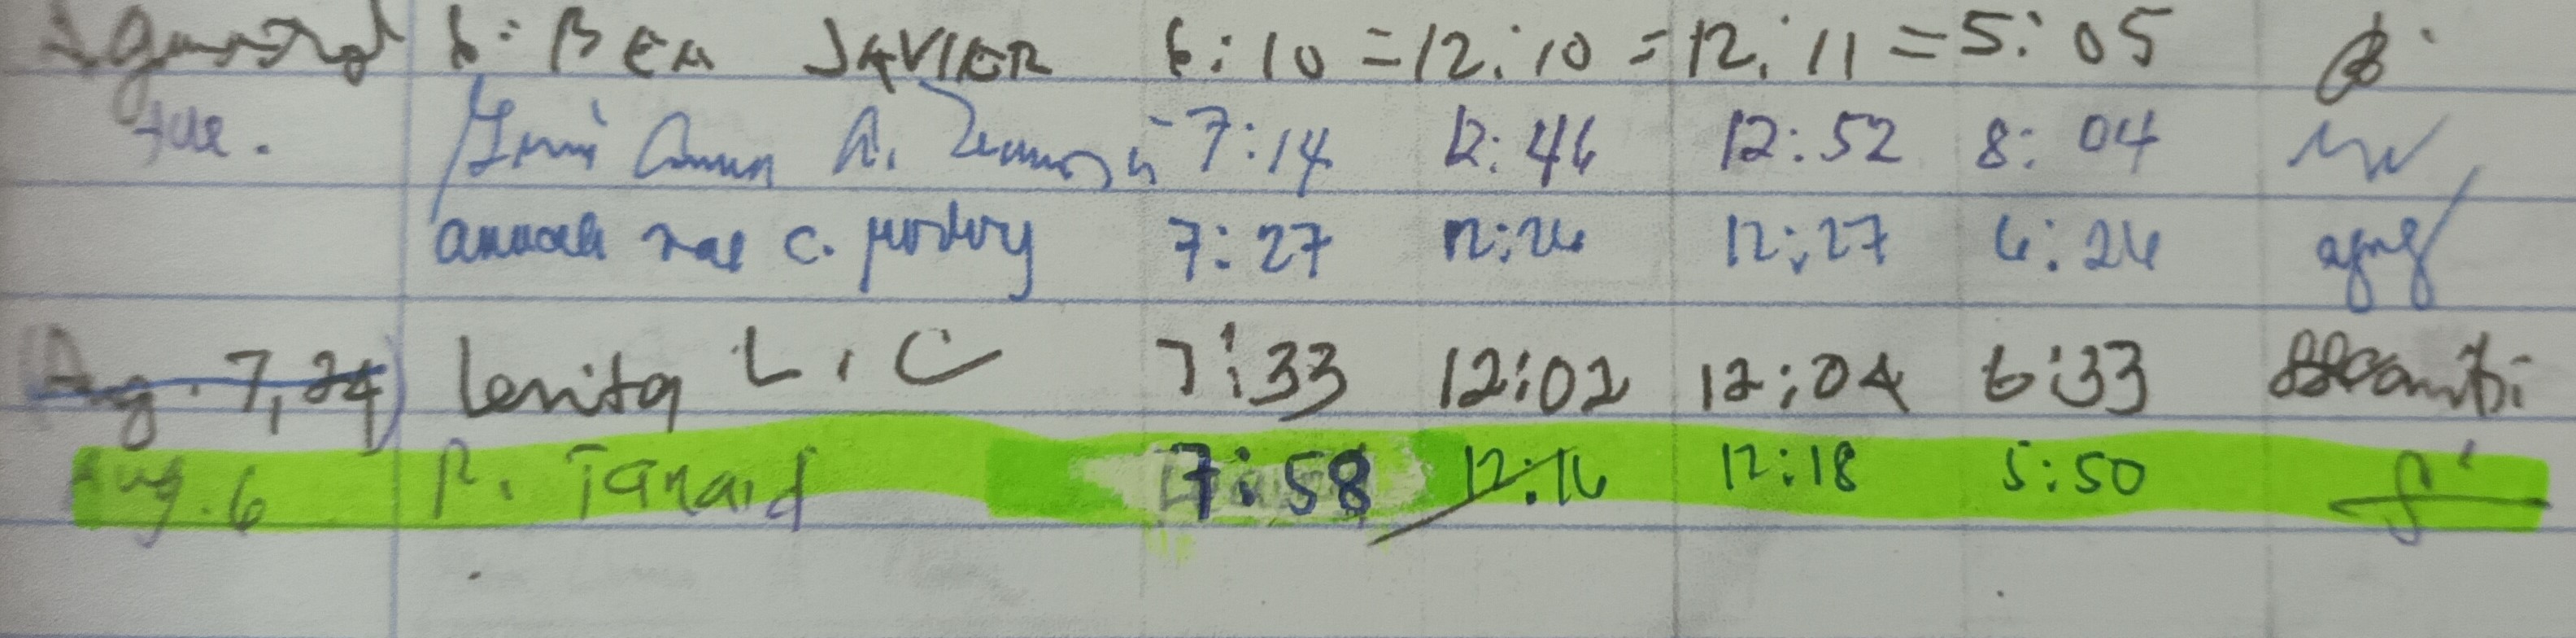 6: BEA JAVIER 6:10 = 12:10 = 12:11 = 5:05
tue. Anna A. 7:14 12:46 12:52 8:04
mae c. 7:27 12:26 12:27 6:26
Aug. 7, 24 Lenita L. C 7:33 12:02 12:04 6:33
Aug. 6 P. Tanaid 7:58 12:16 12:18 5:50